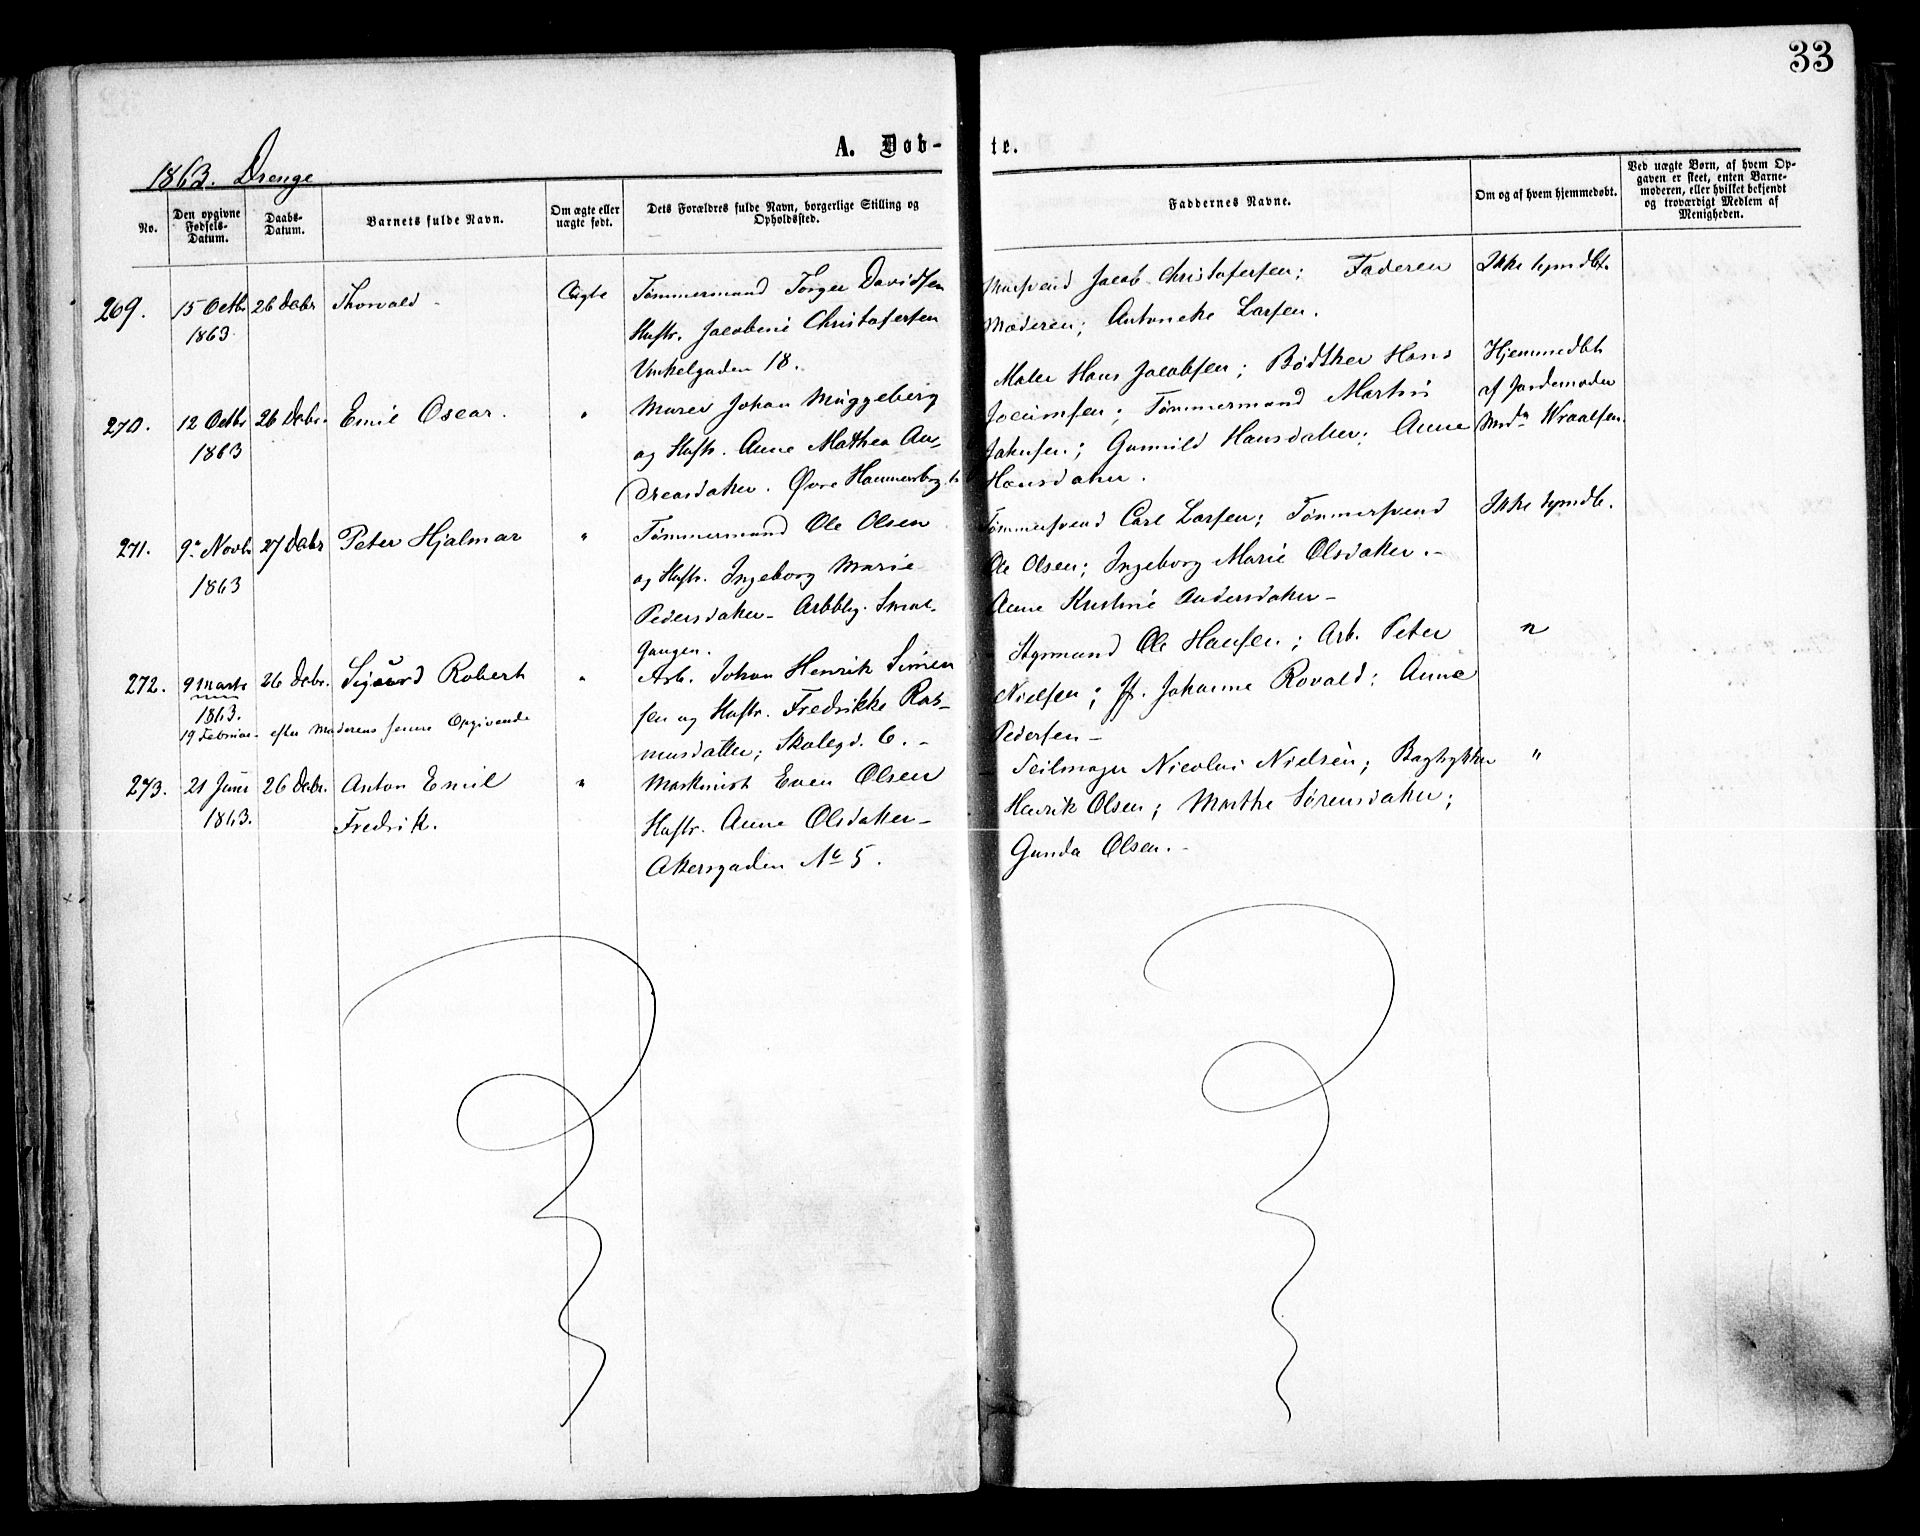 33
A. Døb- te.
1863. Drenge
No.
Den opgivne Fødsels-Datum.
Daabs-Datum.
Barnets fulde Navn.
Om ægte eller uægte født.
Dets Forældres fulde Navn, borgerlige Stilling og Opholdssted.
Faddernes Navne.
Om og af hvem hjemmedøbt.
Ved uægte Børn, af hvem Opgaven er skeet, enten Barnemoderen, eller hvilket bekjendt og troværdigt Medlem af Menigheden.
269. 15 Octbr 26 Decbr Thorvald Ægte Tømmermand Torger Davidsen Jacob Christofersen; Faderen Ikke hjmdbt.
1863 Hustr. Jacobine Christofersen Moderen; Larsen.
Vinkelgaden 18. Maler Hans Jacobsen; Bødtker Hans Hjemmedbt
270. 12 Octbr 26 Decbr. Emil Oscar. " Murer Johan Muggeberg Jocumsen; Tømmermand Martin af Jordemoder
1863 og Hustr. Anne Mathea An- Gunnild Hansdatter; Anne Mdm Wraalsen.
dreasdatter. Øvre Hammersbog. Hansdatter.
271. 9de Novbr 27 Decbr Peter Hjalmar " Tømmermand Ole Olsen Tømmersvend Carl Larsen; Tømmersvend Ikke hjmdb.
1863 og Hustr. Ingeborg Marie Ole Olsen; Ingeborg Marie Olsdatter.-
Pedersdatter- Smal- Anne Kristine Andersdatter-
gangen. Styrmand Ole Hansen; Arb. Peter "
272. 9 Marts 26 Decbr. Sigurd Robert " Arb. Johan Henrik Simen Nielsen; Jf. Johanne Rovald; Anne
1863. sen og Hustr. Fredrikke Ras- Pedersen-
19 Februar- efter Moderens senere Opgivende musdatter; Skolegd. 6.-
273. 21 Juni 26 Decbr. Anton Emil " Maskinist Even Olsen Seilmager Nicolai Nielsen; "
1863. Fredrik. Hustr. Anne Olsdatter- Henrik Olsen; Marthe Sørensdatter;
Akersgaden No 5. Gunda Olsen.-